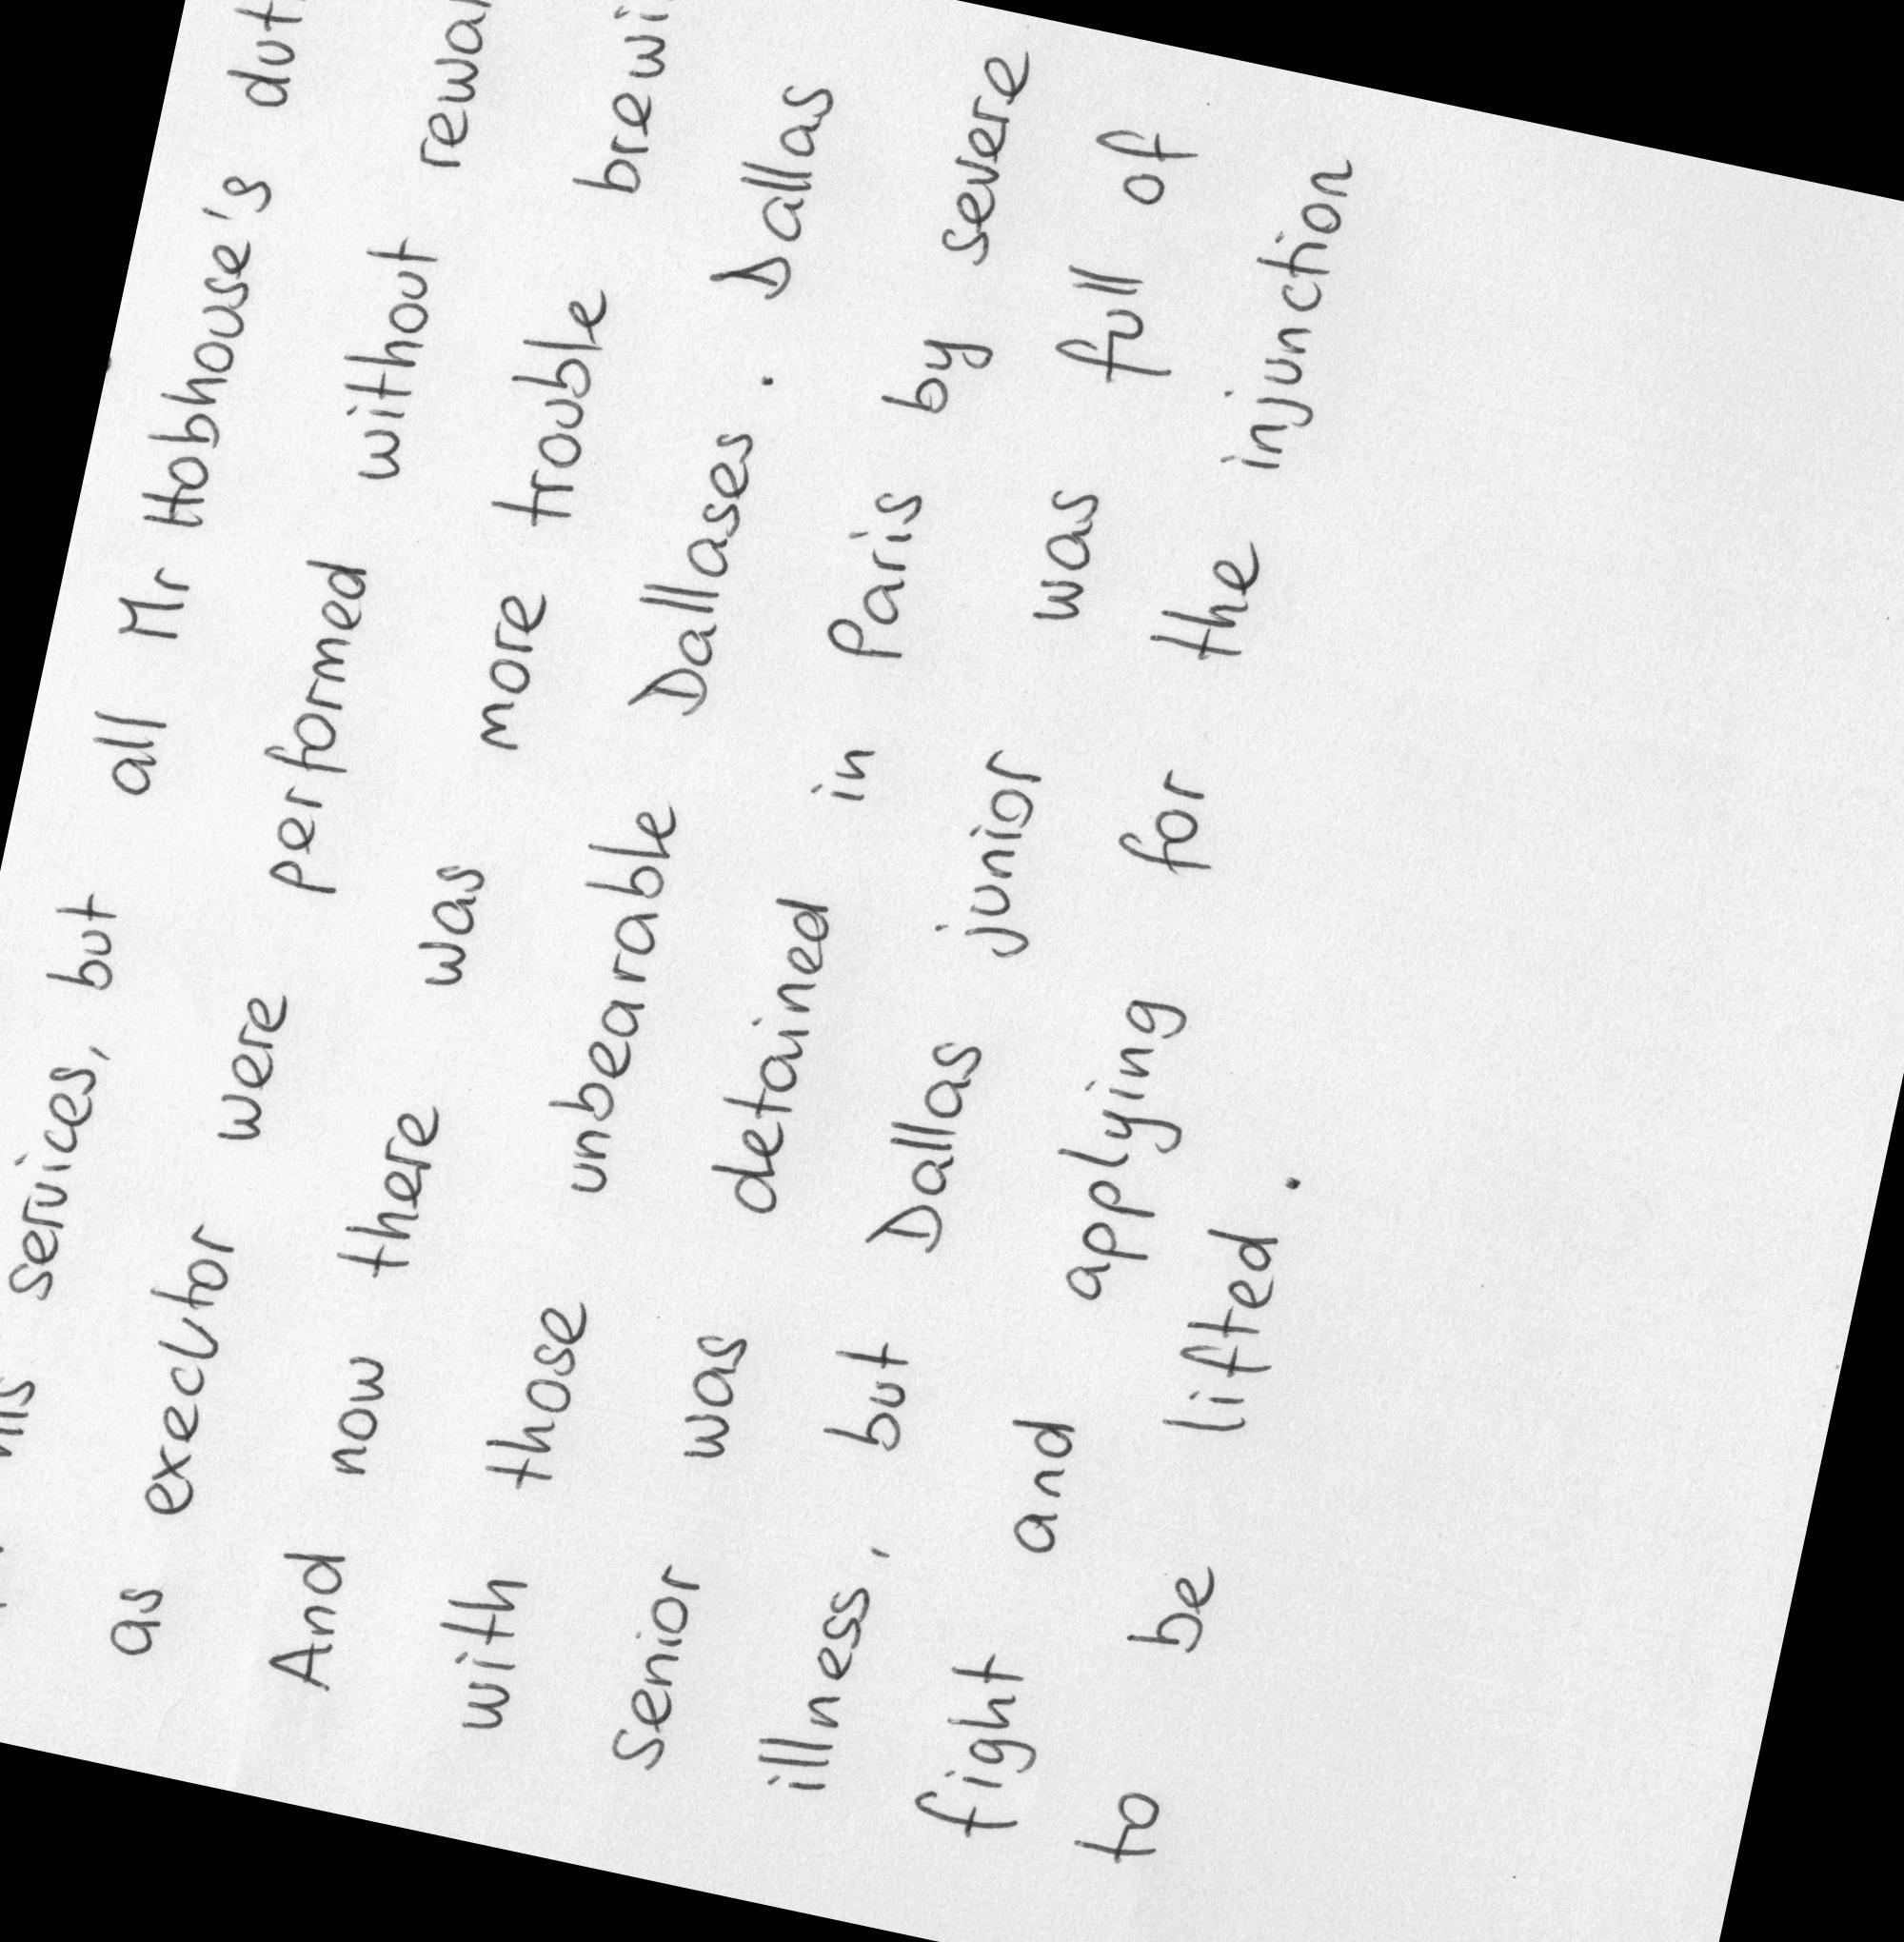 his services, but all Mr Hobhouse's dut
as executor were performed without rewar
And now there was more trouble brewi
with those unbearable Dallases. Dallas
senior was detained in Paris by severe
illness, but Dallas junior was full of
fight and applying for the injunction
to be lifted.